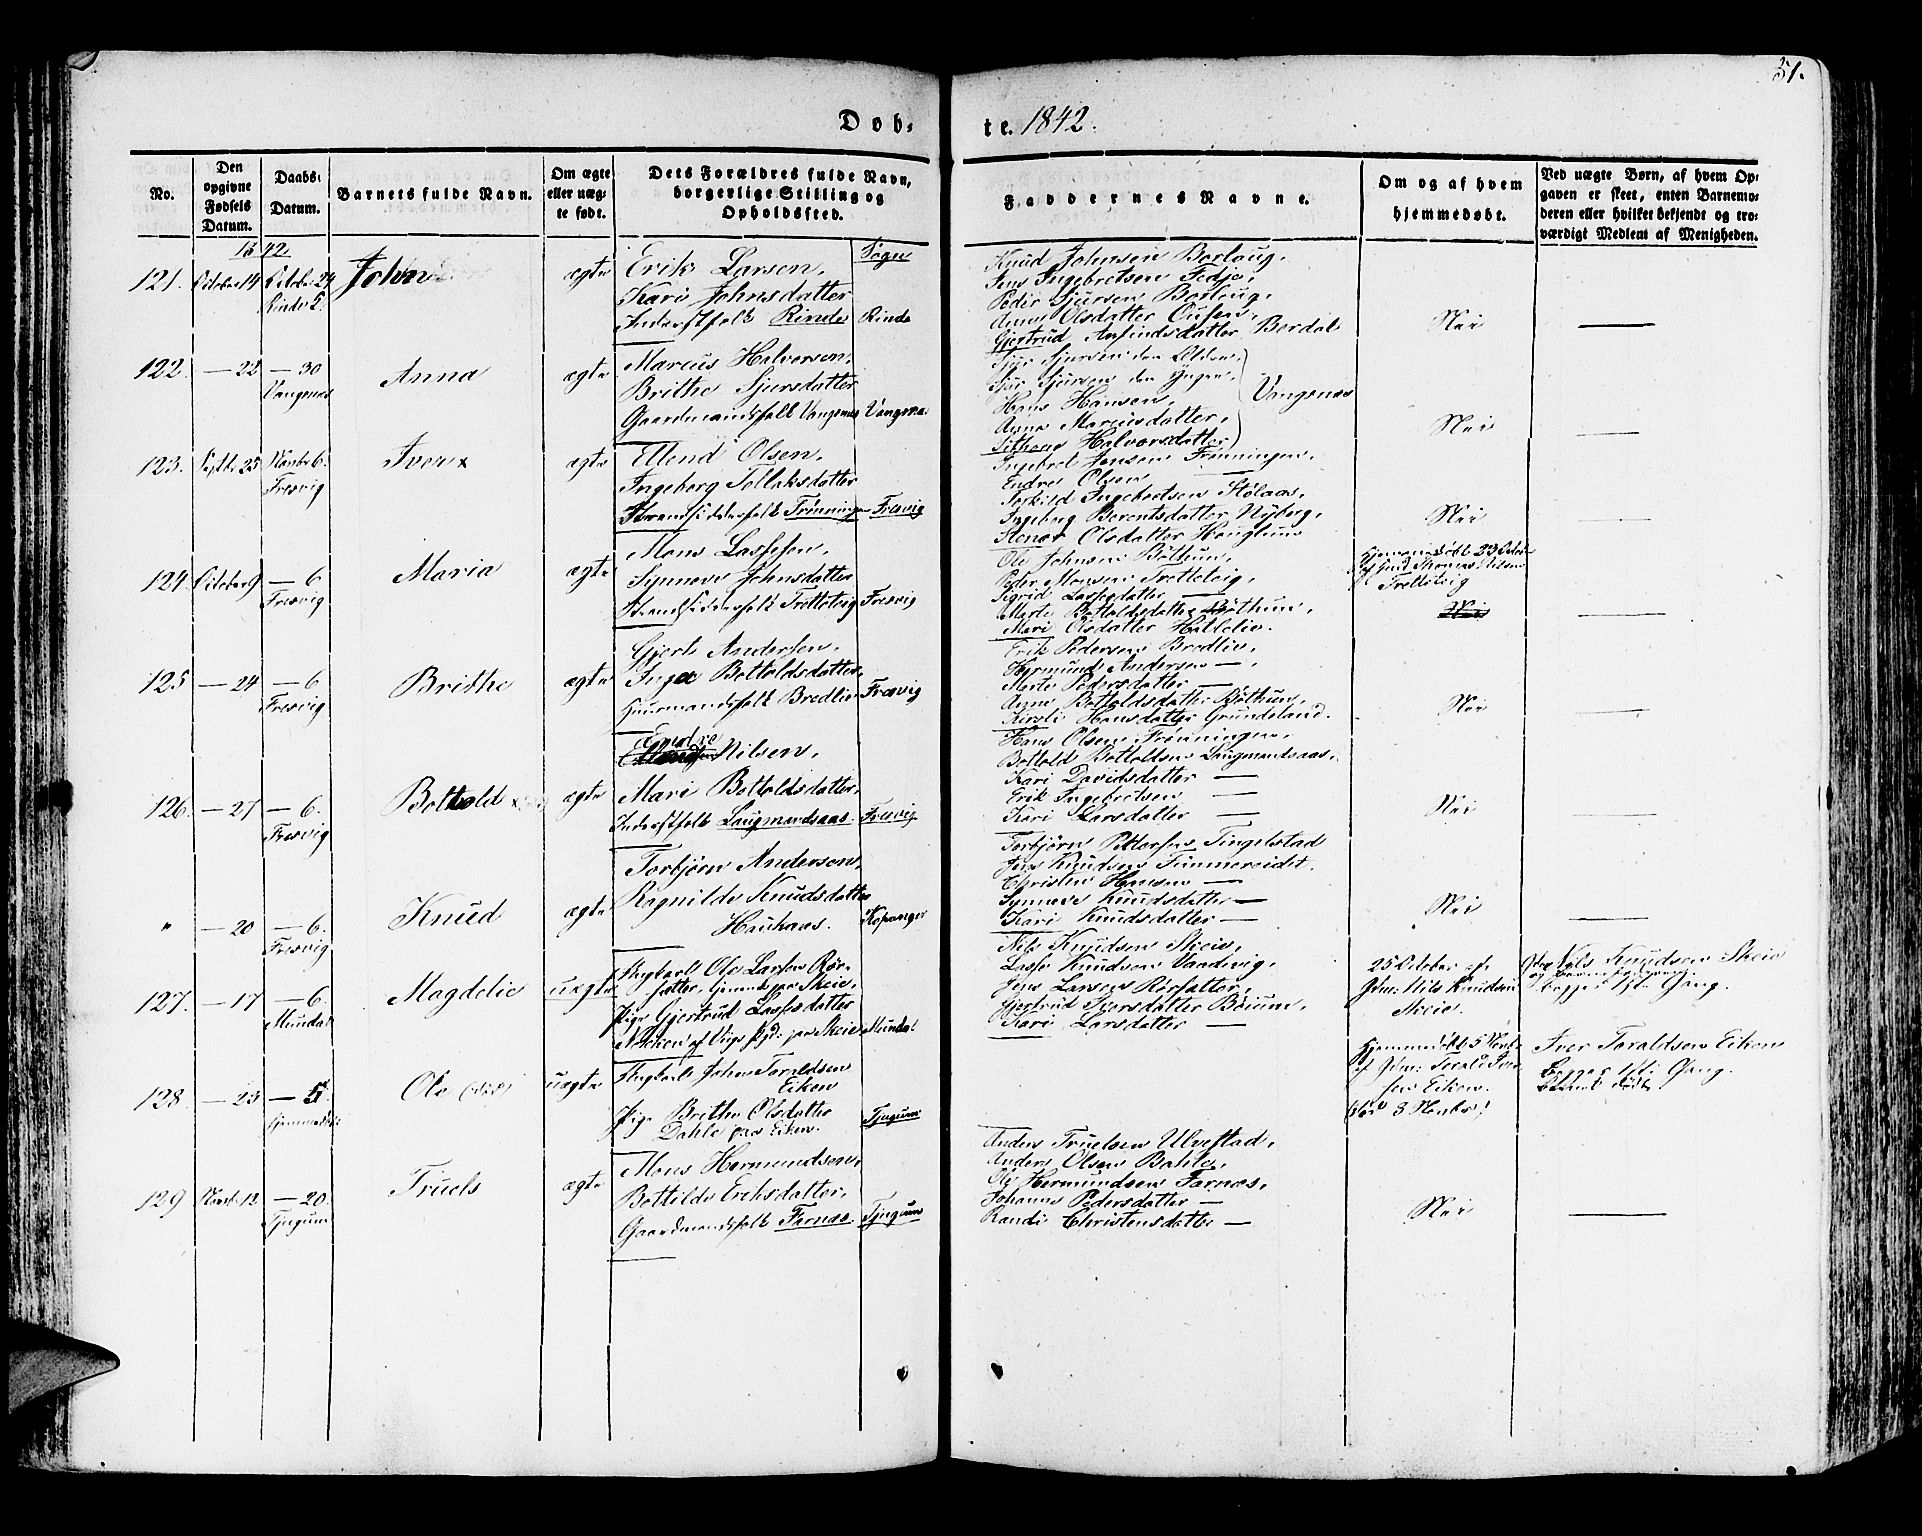 51.
Døb-
te. 1842.
No.
Den opgivne Fødsels Datum.
Daabs-Datum.
Barnets fulde Navn.
Om ægte eller uægte født.
Dets Forældres fulde Navn, borgerlige Stilling og Opholdssted.
Faddernes Navne.
Om og af hvem hjemmedøbt.
Ved uægte Børn, af hvem Opgaven er skeet, enten Barnemoderen eller hvilket bekjendt og troværdigt Medlem af Menigheden.
1842.
Sogn
121. October 14 October 24 Rinde
John
ægte
Erik Larsen,
Kari Johnsdatter
Inderstfolk Rinde
Rinde
Knud Johnsen Borlaug,
Jens Ingebretsen Fedje,
Peder Sjursen Borlaug,
Anna Olsdatter
Gjertrud Anfindsdatter Bordal
Nei
122. — 22 — 30 Vangsnes
Anna
ægte
Marcus Halvorsen,
Brithe Sjursdatter
Gaardmandsfolk Vangsnes
Vangsnes
Sjur Sjursen den Ældre,
Sjur Sjursen den Yngre,
Hans Hansen,
Anna Marcusdatter,
Halvorsdatter
Vangsnes
Nei
123. Septbr 25 Novbr 6. Fresvig
Iver x
ægte
Ellend Olsen,
Ingeborg Tollaksdatter
Strandsidderfolk Frønningen
Fresvig
Ingebret Jensen Frønningen,
Endre Olsen —
Terkild Ingebretsen Stølaas,
Ingeborg Berentsdatter Nyberg,
Olsdatter Hauglum
Nei
124. October 9 — 6 Fresvig
Maria
ægte
Mons Lassesen,
Synneve Johnsdatter
Strandsidderfolk Trotteteig
Fresvig
Ole Johnsen Bøthun,
Peder Monsen Trotteteig,
Sigrid Lassedatter —
Marte Bottolsdatter Bøthun,
Mari Olsdatter Hatlelie.
Hjemmedøbt 23 Octbr
af Thomas Nilsen
Trotteteig
Nei
125 — 24 — 6 Fresvig
Brithe
ægte
Gjert Andersen,
Inga Bottoldsdatter,
Huusmandsfolk Bredlie
Fresvig
Erik Pedersen Bredlie,
Hermund Andersen —,
Marte Pedersdatter —
Anna Bottoldsdatter Bøthun,
Kirsti Hansdatter Grundeland.
Nei
126. — 27 — 6. Fresvig
Bottold
ægte
Endre
Nilsen,
Mari Bottoldsdatter,
Inderstfolk Laugmandsaas.
Fresvig
Hans Olsen Frønningen,
Bottold Bottoldsen Laugmandsaas,
Kari Davidsdatter —
Erik Ingebretsen —
Kari Larsdatter —
Nei
" — 20 — 6. Fresvig
Knud
ægte
Torbjørn Andersen,
Ragnilde Knudsdatter
Haukaas.
Kopanger
Torbjørn Pettersen Tingelstad
Jens Knudsen Timmereidet.
Christen Hansen —
Synneve Knudsdatter —
Kari Knudsdatter —
Nei
127. — 17 — 6. Mundal
Magdelie
uægte
Ungkarl Ole Larsen Rør-
sætter, tjenende paa Skeie,
Pige Gjertrud Lassesdatter
paa Skeie
Mundal
Nils Knudsen Skeie,
Lasse Knudsen
Jens Larsen Rørsætter,
Gjertrud Iversdatter Bøium,
Kari Larsdatter —
25 October af
Gdm: Nils Knudsen
Skeie.
Nils Knudsen Skeie
begges 1ste Gang.
128. — 23 — 5. Hjemmedøbt
Ole (død)
uægte
Ungkarl John Toraldsen
Eiken
Pige Brithe Olsdatter
Dahle paa Eiken.
Tjugum
Hjemmedøbt 5 Novbr
af Gdm: Torald Iver-
sen Eiken.
3 Novbr!
Iver Toraldsen Eiken
Begges 1ste Gang.
129 Novbr 12 — 20. Tjugum
Truels
ægte
Mons Hermundsen,
Bottilde Eriksdatter,
Gaardmandsfolk Farnæs.
Tjugum
Anders Truelsen Ulvestad,
Anders Olsen Bahle,
Ole Hermundsen Farnæs,
Johanna Pedersdatter —
Randi Christensdatter —
Nei